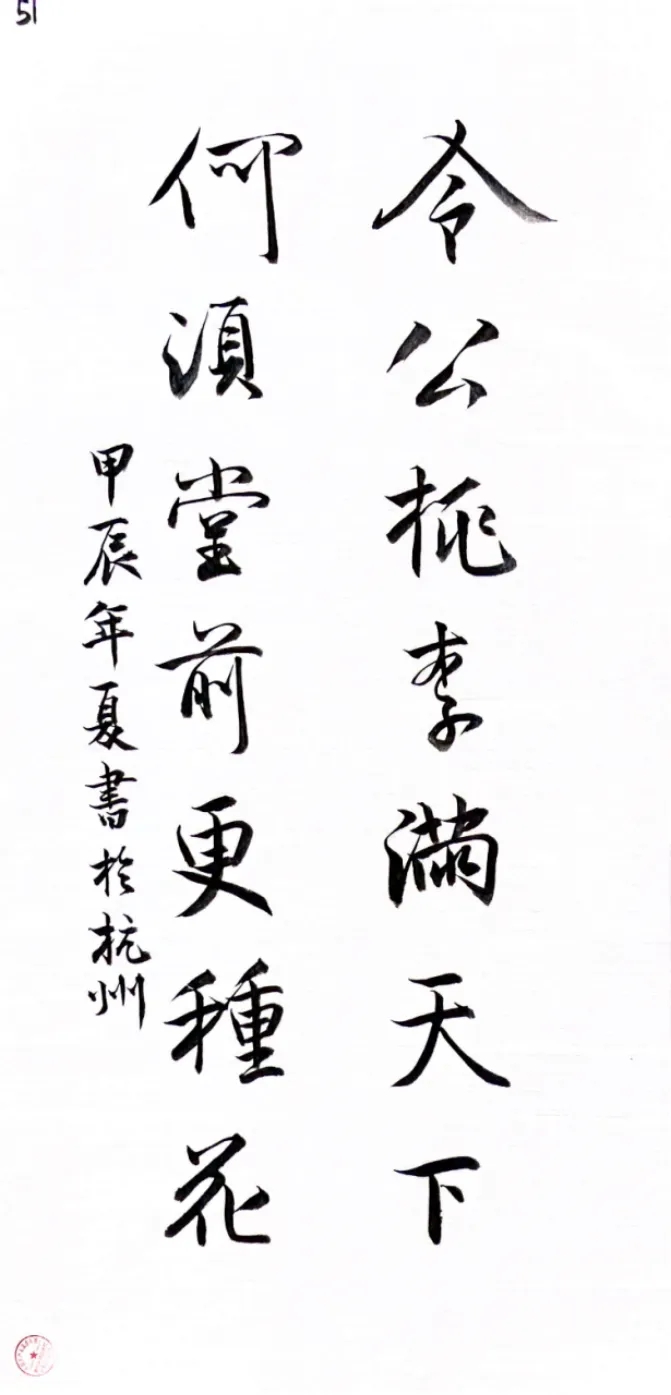 51
令公桃李滿天下
何須堂前更種花
甲辰年夏書於杭州